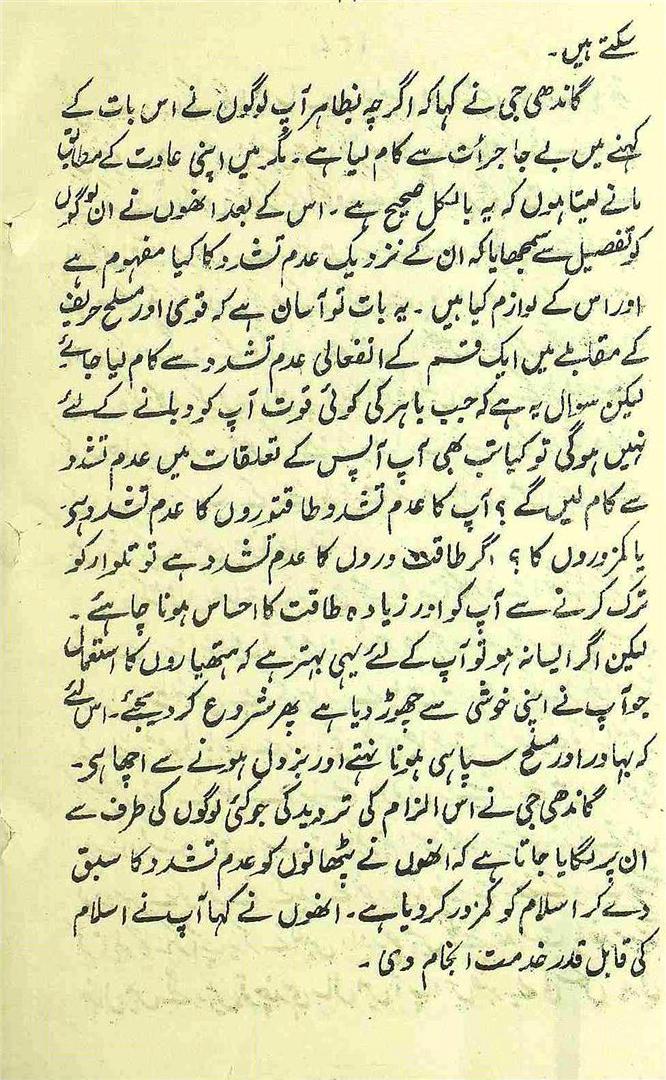 سکتے ہیں۔
گاندھی جی نے کہا کہ اگرچہ بظاہر آپ لوگوں نے اس بات کے
کہنے میں بے جا جرأت سے کام لیا ہے۔ مگر میں اپنی عادت کے مطابق
مانے لیتا ہوں کہ یہ بالکل صحیح ہے۔ اس کے بعد انھوں نے ان لوگوں
کو تفصیل سے سمجھایا کہ ان کے نزدیک عدم تشدد کا کیا مفہوم ہے
اور اس کے لوازم کیا ہیں۔ یہ بات تو آسان ہے کہ قوی اور مسلح حریف
کے مقابلے میں ایک قسم کے انفعالی عدم تشدد سے کام لیا جائے
لیکن سوال یہ ہے کہ جب باہر کی کوئی قوت آپ کو دبانے کے لئے
نہیں ہوگی تو کیا تب بھی آپ آپس کے تعلقات میں عدم تشدد
سے کام لیں گے؟ آپ کا عدم تشدد طاقتوروں کا عدم تشدد ہی
یا کمزوروں کا؟ اگر طاقت وروں کا عدم تشدد ہے تو تلوار کو
ترک کرنے سے آپ کو اور زیادہ طاقت کا احساس ہونا چاہئے۔
لیکن اگر ایسا نہ ہو تو آپ کے لئے یہی بہتر ہے کہ ہتھیاروں کا استعمال
جو آپ نے اپنی خوشی سے چھوڑ دیا ہے پھر شروع کر دیجئے۔ اس لئے
کہ بہادر اور مسلح سپاہی ہونا نہتے اور بزدل ہونے سے اچھا ہی۔
گاندھی جی نے اس الزام کی تردید کی جو کئی لوگوں کی طرف سے
ان پر لگایا جاتا ہے کہ انھوں نے پٹھانوں کو عدم تشدد کا سبق
دے کر اسلام کو کمزور کر دیا ہے۔ انھوں نے کہا آپ نے اسلام
کی قابل قدر خدمت انجام دی۔